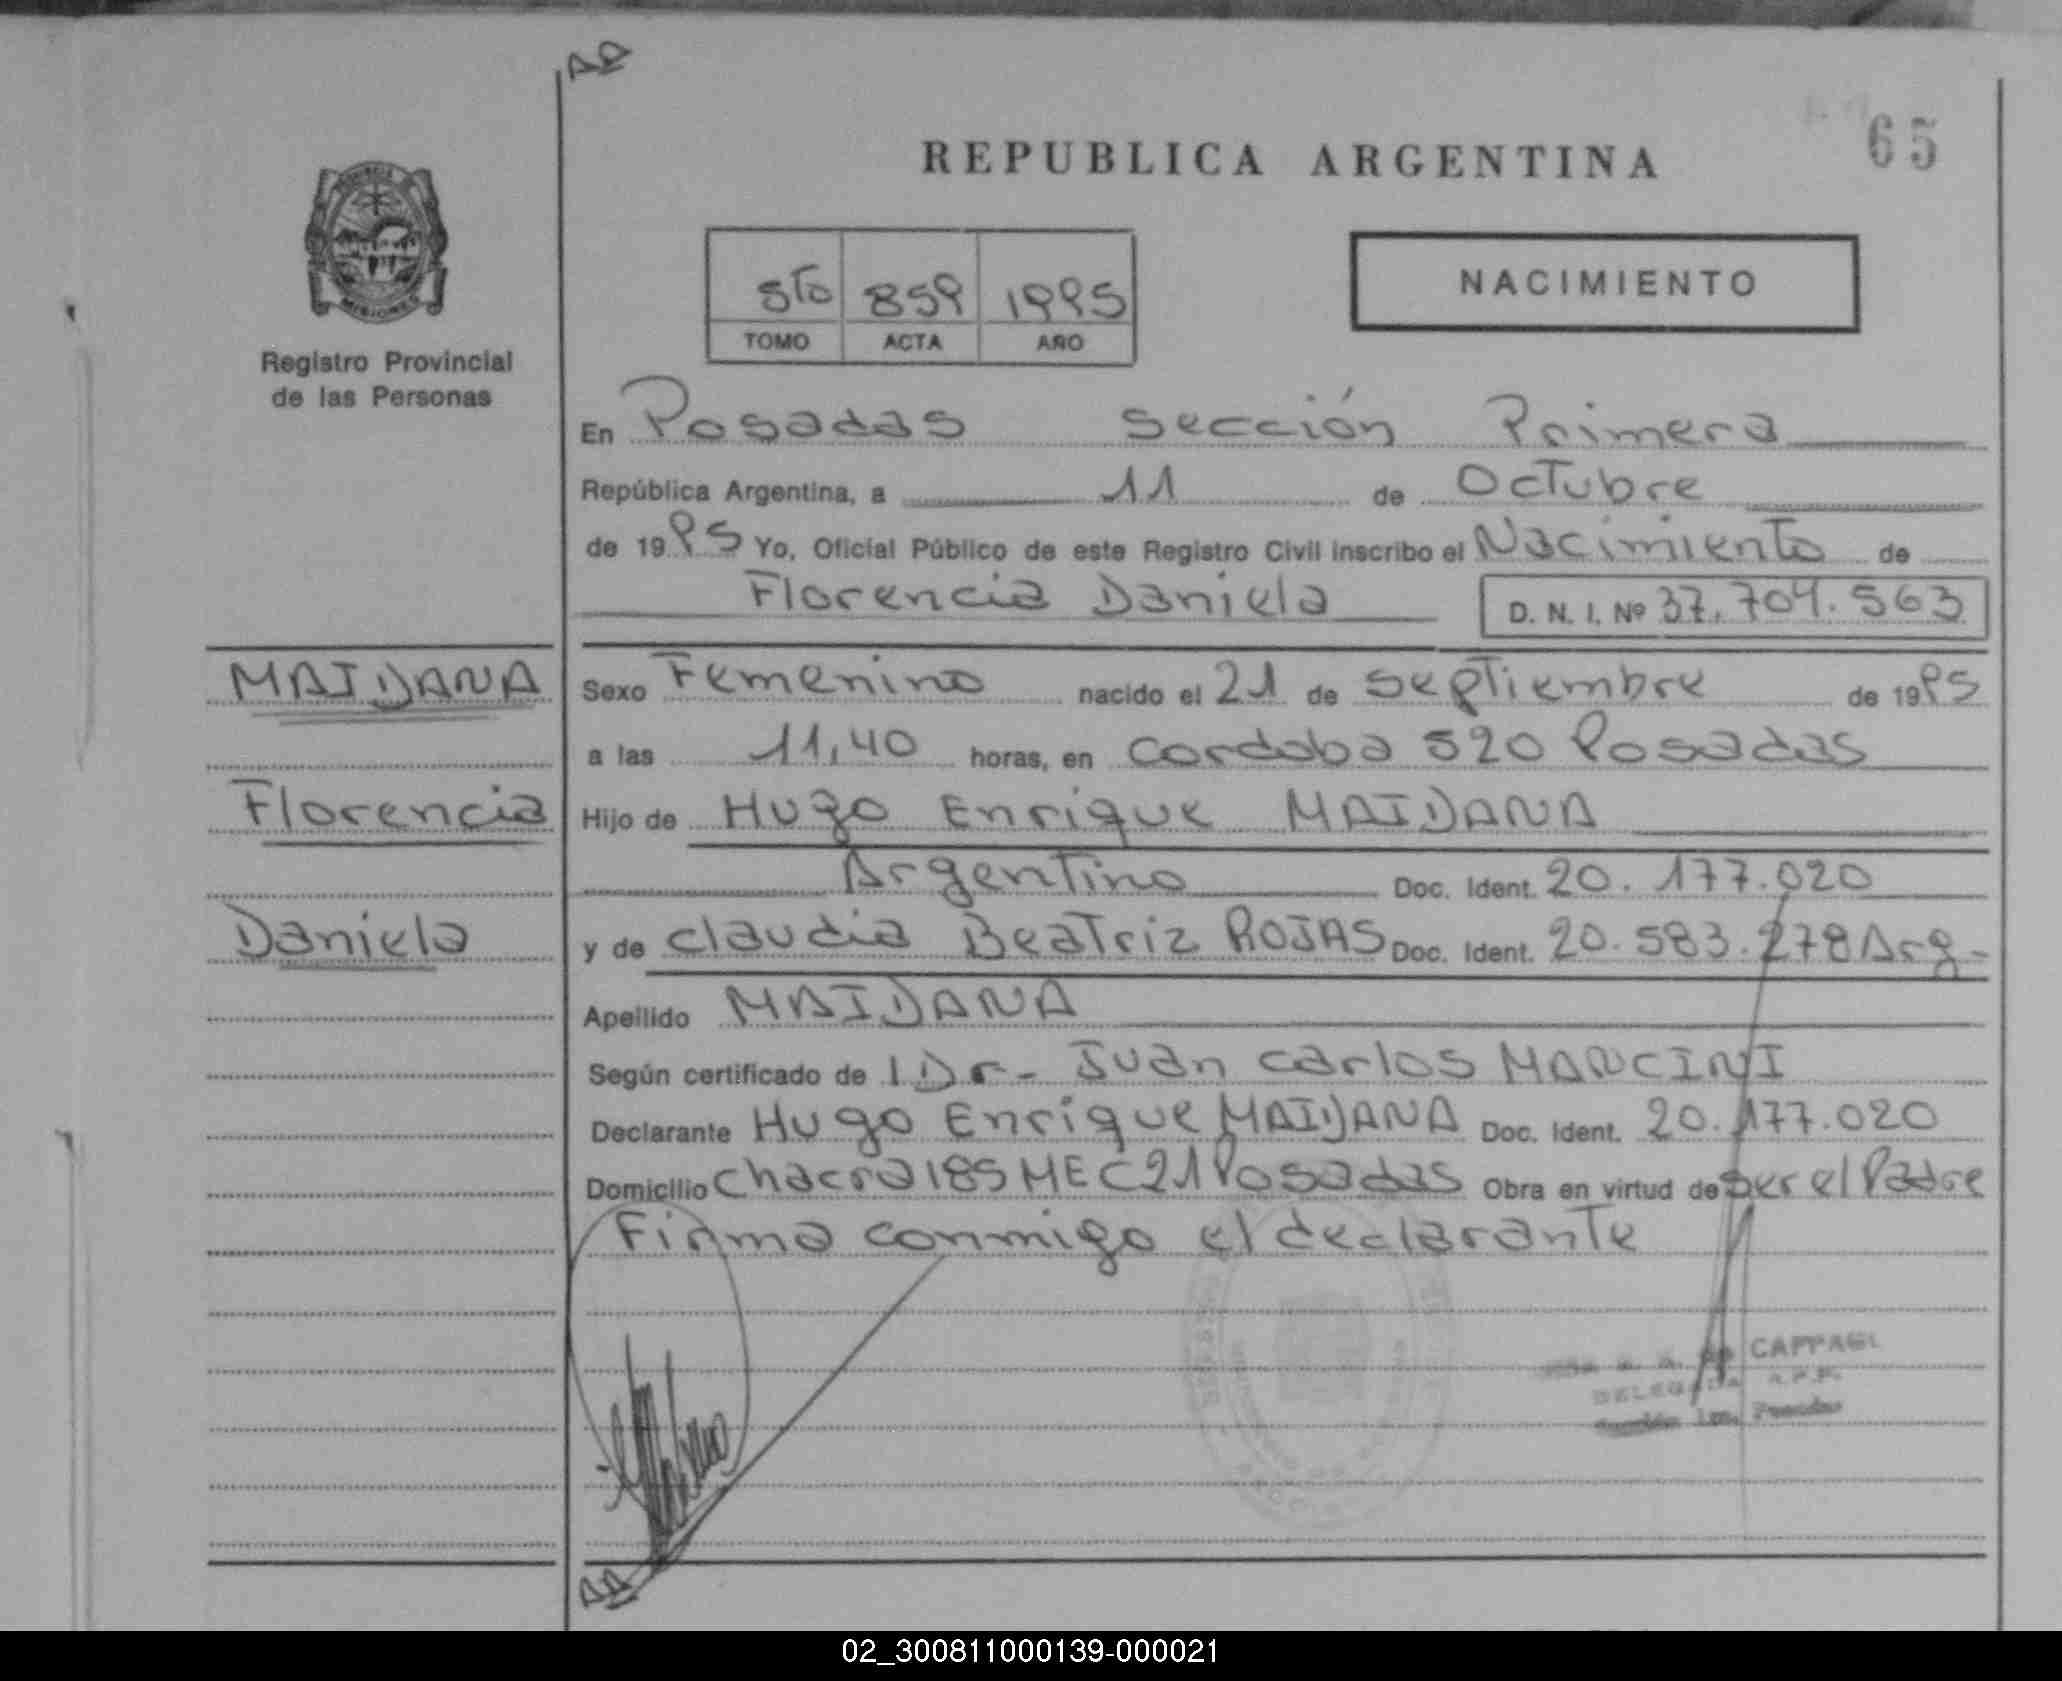 AA
65
REPUBLICA ARGENTINA
5to 859 1995
TOMO ACTA AÑO
NACIMIENTO
MISIONES
Registro Provincial
de las Personas
En Posadas Sección Primera
República Argentina, a 11 de Octubre
de 1995 Yo, Oficial Público de este Registro Civil inscribo el Nacimiento de
Florencia Daniela D. N. I. Nº 37.704.563
MAIDANA
Florencia
Daniela
Sexo Femenino nacido el 21 de Septiembre de 1995
a las 11,40 horas, en Cordoba 520 Posadas
Hijo de Hugo Enrique MAIDANA
Argentino Doc. Ident. 20.177.020
y de Claudia Beatriz ROJAS Doc. Ident. 20.583.278 Arg-
Apellido MAIDANA
Según certificado de l Dr- Juan Carlos MANCINI
Declarante Hugo Enrique MAIDANA Doc. Ident. 20.177.020
Domicilio Chacra 185 ME C21 Posadas Obra en virtud de ser el Padre
Firma conmigo el declarante
CAPPAGL
DELEGADA R.P.P.
Sección 1ra. Posadas
AA
02_300811000139-000021